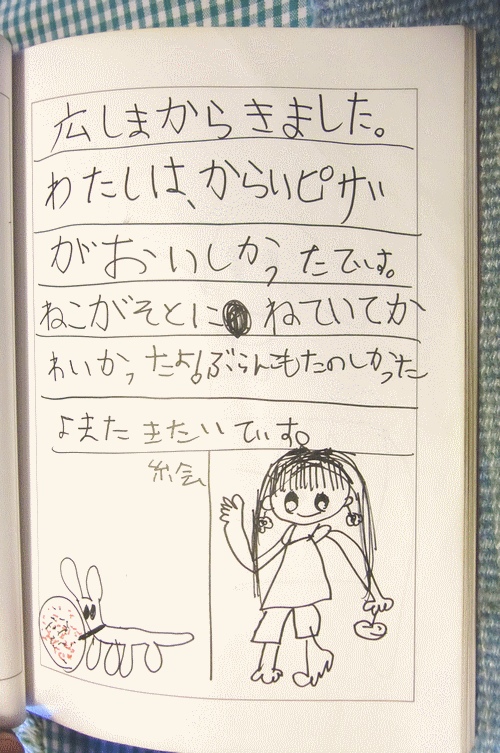 広しまからきました。
わたしは、からいピザ
がおいしかったです。
ねこがそとにねていてか
わいかったよ!ぶらんこもたのしかった
よまたきたいです。
絵